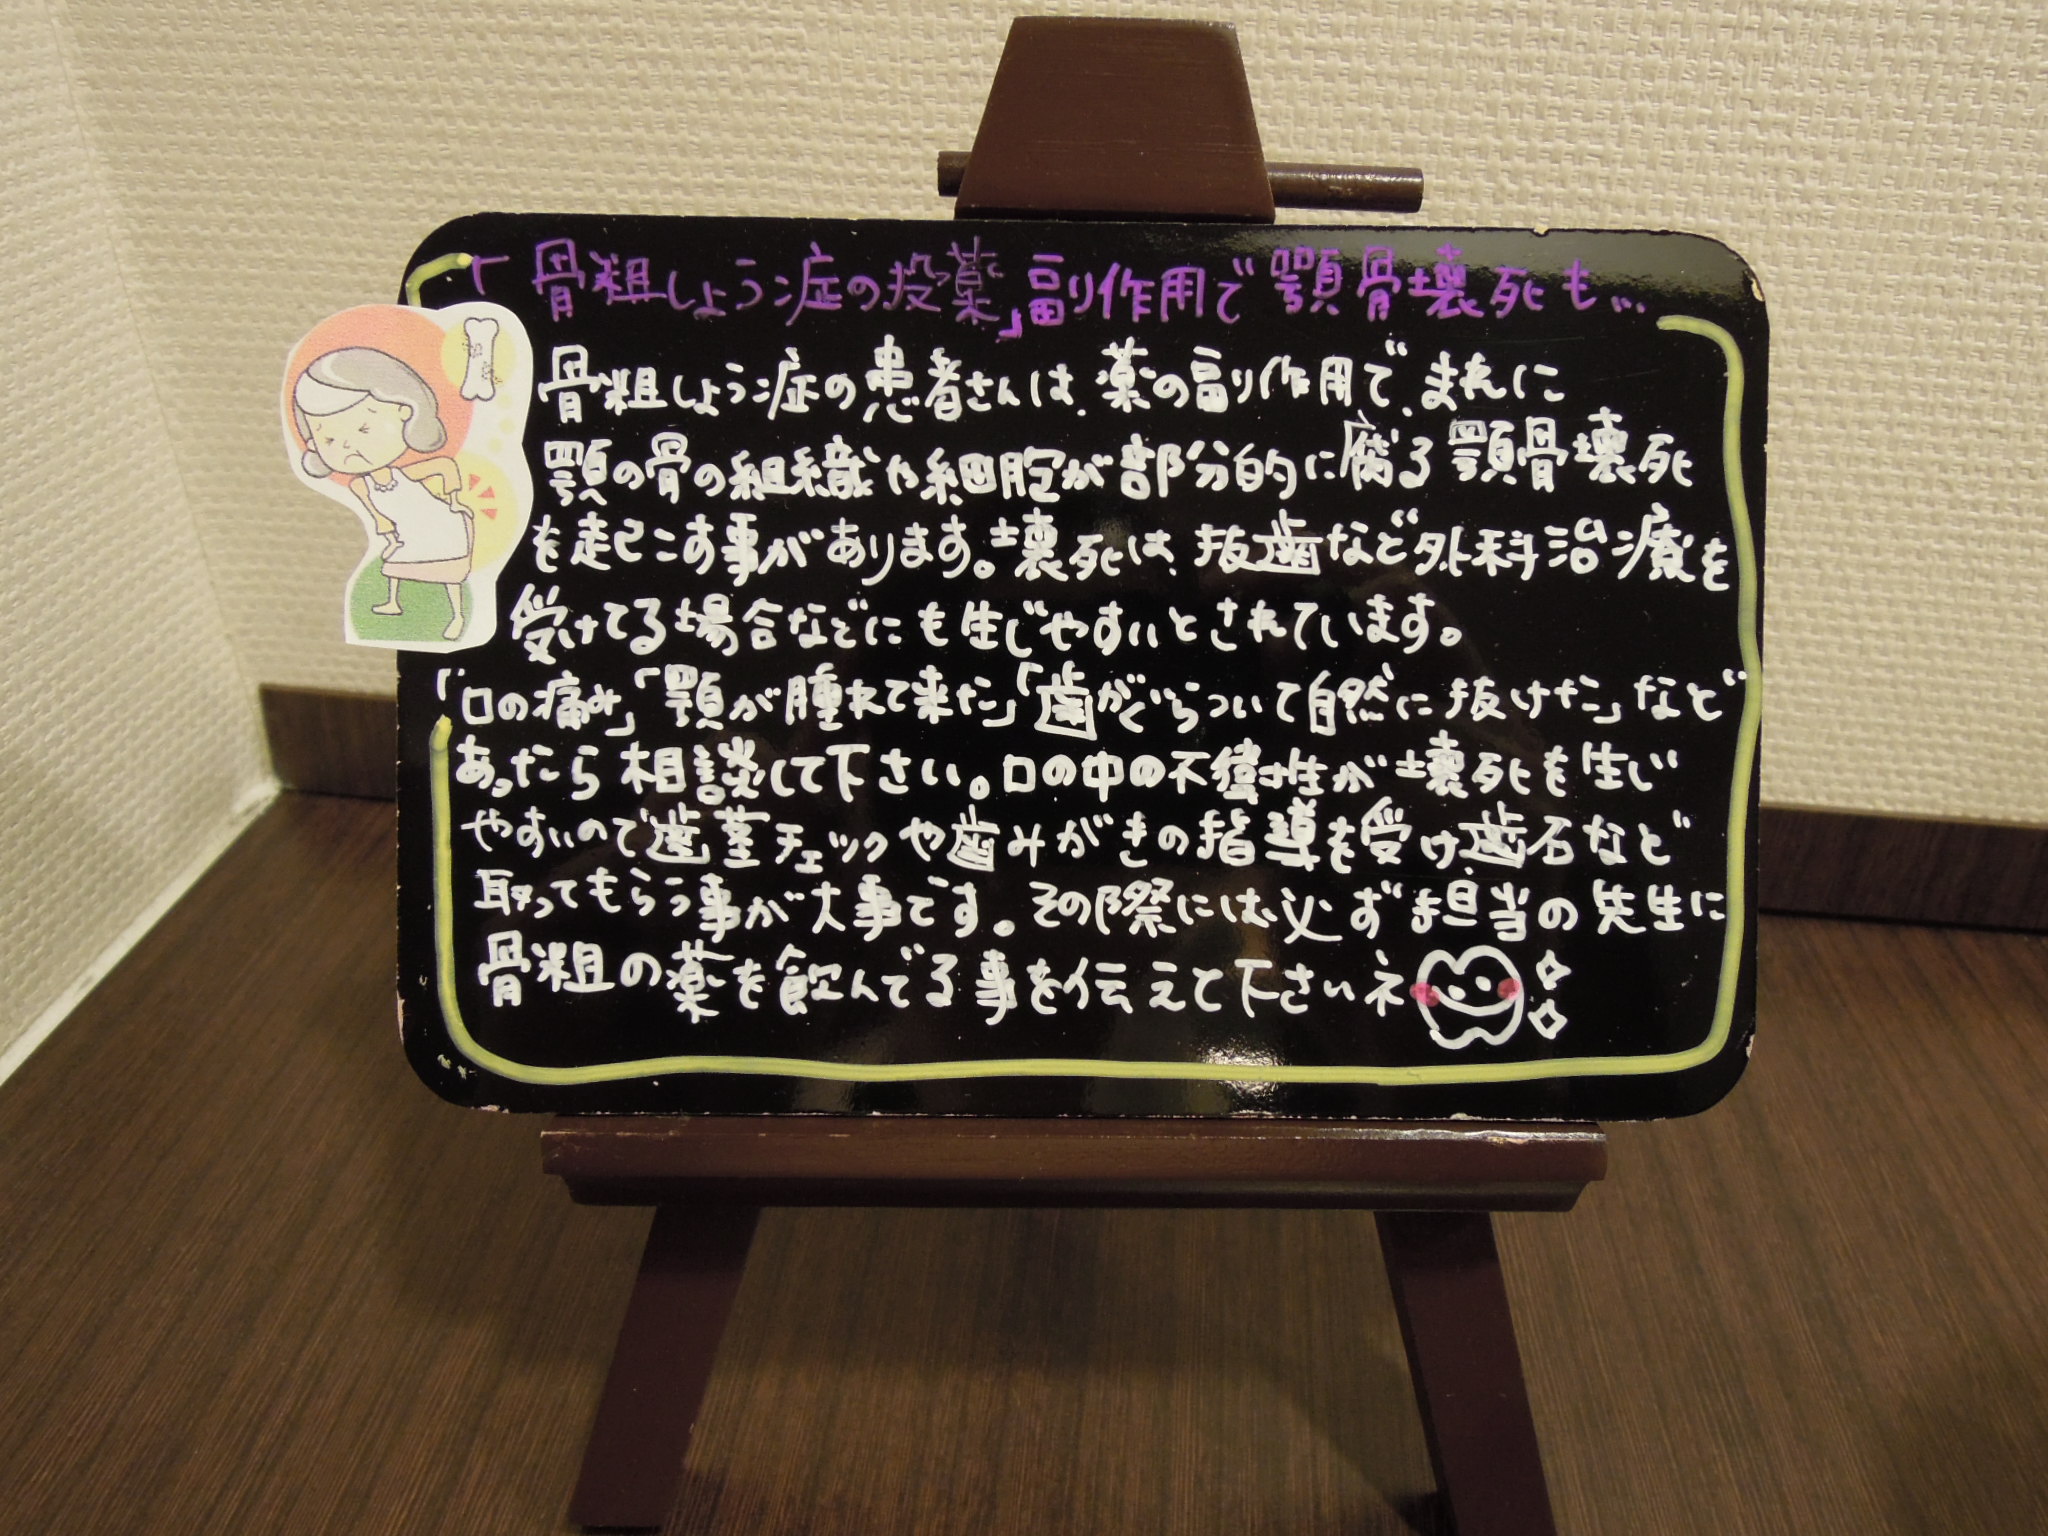 「骨粗しょう症の投薬」副作用で顎骨壊死も…
骨粗しょう症の患者さんは、薬の副作用で、まれに
顎の骨の組織や細胞が部分的に腐る顎骨壊死
を起こす事があります。壊死は、抜歯など外科治療を
受けてる場合などにも生じやすいとされています。
「口の痛み」「顎が腫れて来た」「歯がぐらついて自然に抜けた」など
あったら相談して下さい。口の中の不衛性が壊死を生じ
やすいので歯茎チェックや歯みがきの指導を受け歯石など
取ってもらう事が大事です。その際には必ず担当の先生に
骨粗の薬を飲んでる事を伝えて下さいネ